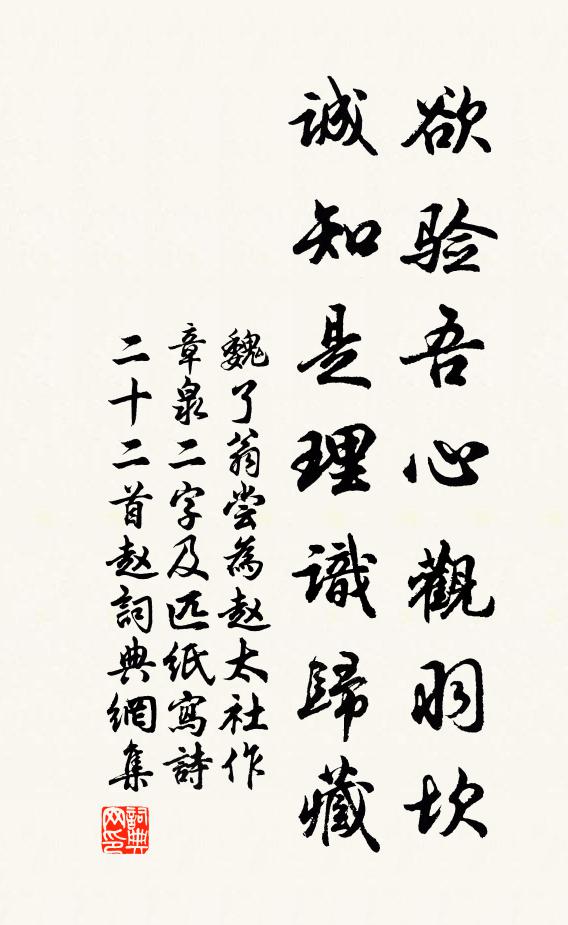 欲验吾心觀羽坎
誠知是理識歸藏
魏了翁尝為赵太社作
章泉二字及匹紙寫詩
二十二首赵詞典網集
詞典网印